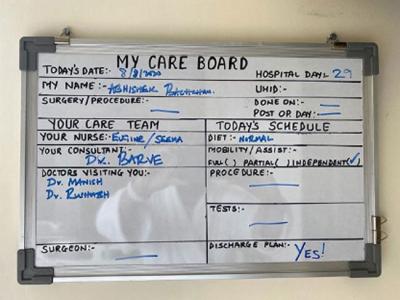 MY CARE BOARD
TODAY'S DATE:- 8/8/2020
HOSPITAL DAY:- 29
MY NAME:- ABHISHEK BACHCHAN
UHID:-
SURGERY/PROCEDURE:-
DONE ON:-
POST OP. DAY:-
YOUR CARE TEAM
YOUR NURSE:- EUGINE/SEEMA
YOUR CONSULTANT:-
Dr. BARVE
DOCTORS VISITING YOU:-
Dr. MANISH
Dr.
SURGEON:-
TODAY'S SCHEDULE
DIET:- NORMAL
MOBILITY/ASSIST:-
FULL( ) PARTIAL( ) INDEPENDENT(✓)
PROCEDURE:-
TESTS:-
DISCHARGE PLAN:- YES!